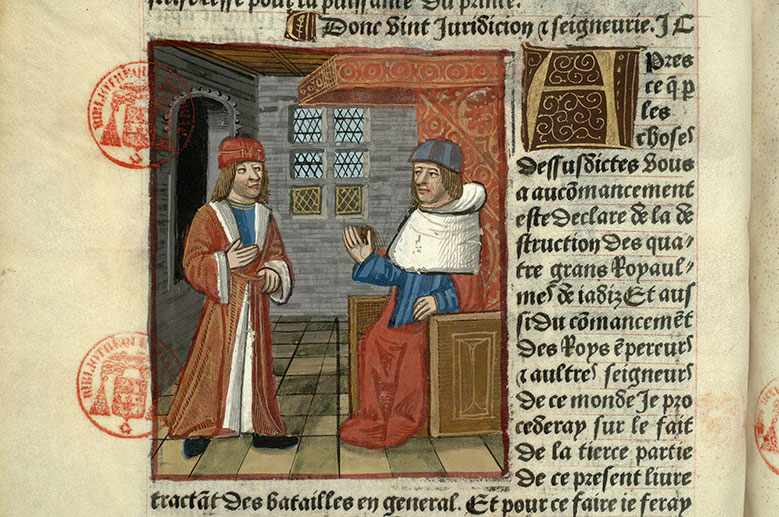 pour la puissance du prince.
Donc vint Juridicion ⁊ seigneurie. J C
Apres
ce q̄ p
les
choses
dessusdictes vous
a au cōmancement
este declare de la de
struction des qua-
tre grans Royaul-
mes de iadiz Et aus
si du cōmancemēt
des Roys ēpereurs
⁊ aultres seigneurs
de ce monde Je pro
cederay sur le fait
de la tierce partie
de ce present liure
tractāt des batailles en general. Et pour ce faire ie feray